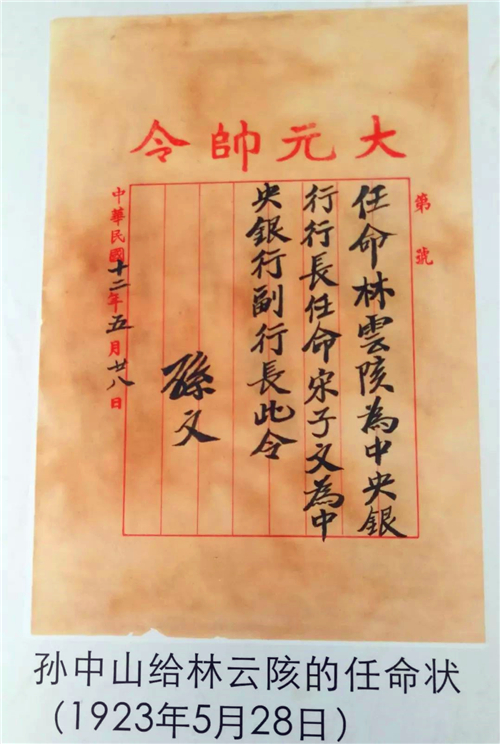 大元帥令
第 號
任命林雲陔為中央銀
行行長任命宋子文為中
央銀行副行長此令
孫文
中華民國十二年五月廿八日
孙中山给林云陔的任命状
（1923年5月28日）